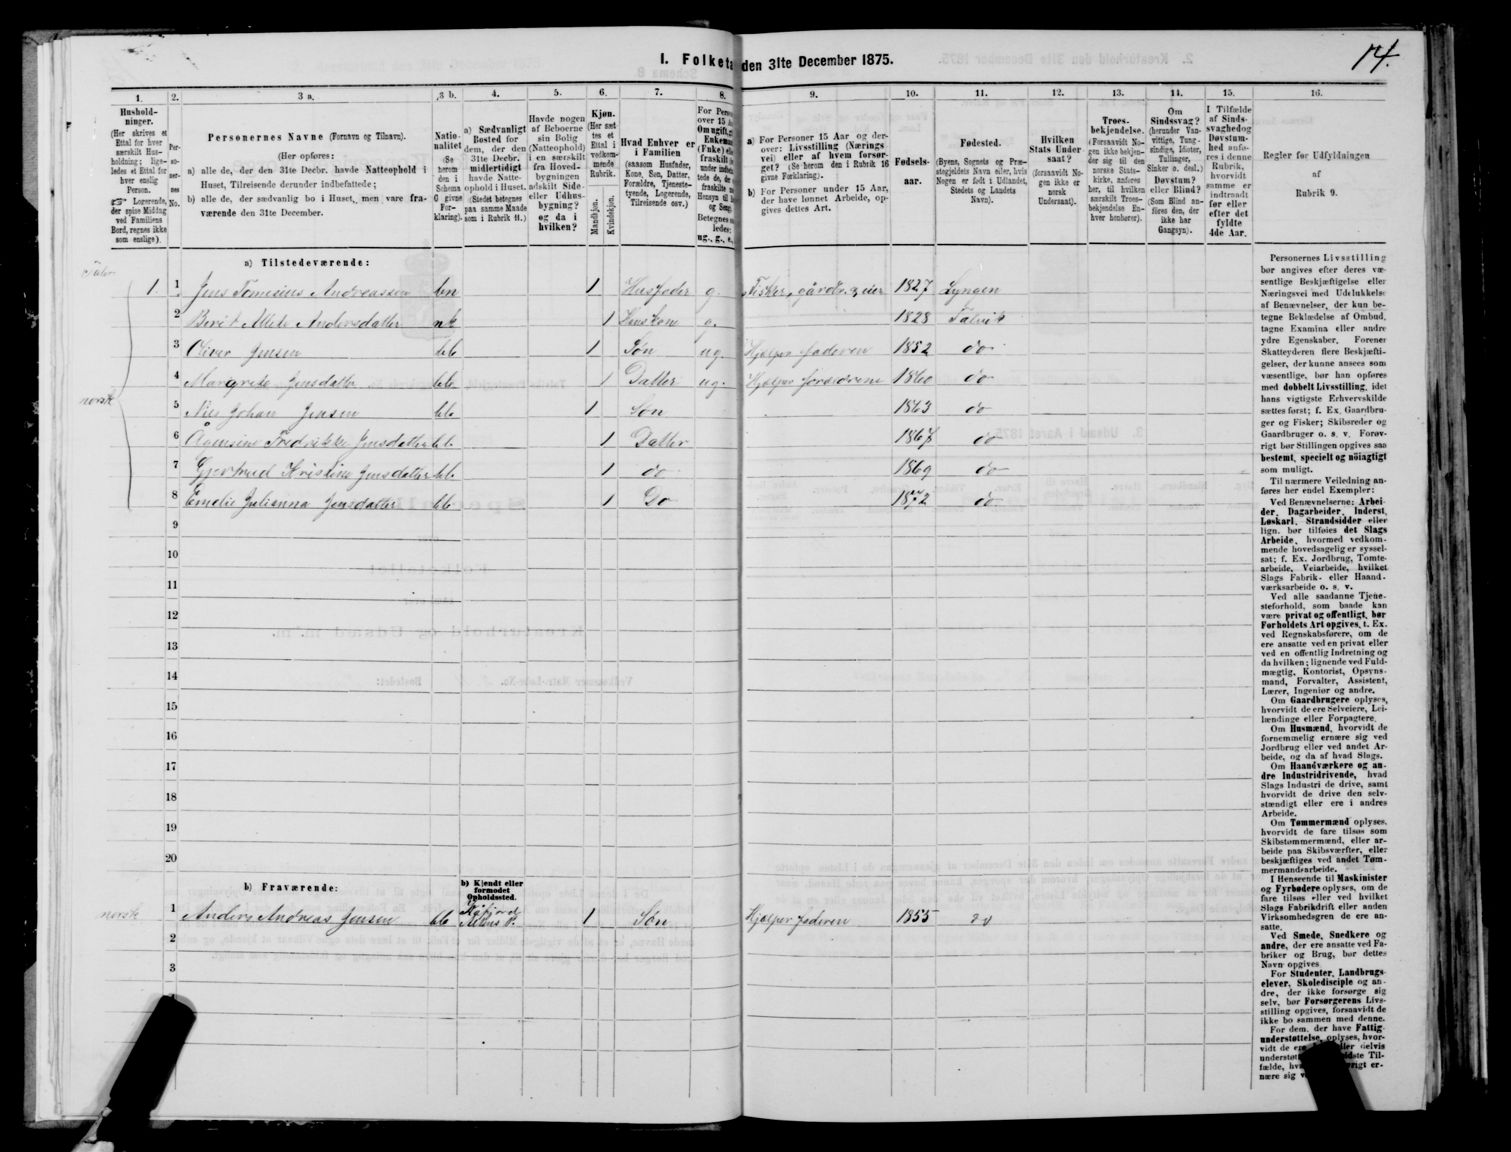 14.
I. Folketa den 31te December 1875.
1. 2. 3 a. 3 b. 4. 5. 6. 7. 8. 9. 10. 11. 12. 13. 14. 15. 16.
Hushold-
ninger.
(Her skrives et
Ettal for hver
særskilt Hus-
holdning; lige-
ledes et Ettal for
hver enslig
Person.
☞ Logerende,
der spise Middag
ved Familiens
Bord, regnes ikke
som enslige).
Per-
so-
ner-
nes
No.
Personernes Navne (Fornavn og Tilnavn).
(Her opføres:
a) alle de, der den 31te Decbr. havde Natteophold i
Huset, Tilreisende derunder indbefattede;
b) alle de, der sædvanlig bo i Huset, men vare fra-
værende den 31te December.
Natio-
nalitet
(Se
herom
den i
Schema
C givne
For-
klaring).
a) Sædvanligt
Bosted for
dem, der den
31te Decbr.
midlertidigt
havde Natte-
ophold i Huset.
(Stedet betegnes
paa samme Maade
som i Rubrik 11.)
Havde nogen
af Beboerne
sin Bolig
(Natteophold)
i en særskilt
fra Hoved-
bygningen
adskilt Side-
eller Udhus-
bygning?
og da i
hvilken?
Kjøn.
(Her sæt
tes et
Ettal i
vedkom-
mende
Rubrik.
Mandkjøn.
Kvindekjøn.
Hvad Enhver er
i Familien
(saasom Husfader,
Kone, Søn, Datter,
Forældre, Tjeneste-
tyende, Logerende,
Tilreisende osv.)
For Perso
over 15 A
Om ugift, g
Enkema
(Fnke) ell
fraskilt
ug., g., e.,
a) For Personer 15 Aar og der-
over: Livsstilling (Nærings
vei) eller af hvem forsør-
get? (Se herom den i Rubrik 16
givne Forklaring).
b) For Personer under 15 Aar,
der have lønnet Arbeide, op-
gives dettes Art.
Fødsels-
aar.
Fødested.
(Byens, Sognets og Præ-
stegjeldets Navn eller, hvis
Nogen er født i Udlandet,
Stedets og Landets
Navn).
Hvilken
Stats Under
saat?
(forsaavidt No-
gen ikke er
norsk
Undersaat).
Troes-
bekjendelse.
(Forsaavidt No-
gen ikke bekjen-
der sig til den
norske Stats-
kirke, anføres
her, til hvilken
særskilt Troes-
bekjendelse En-
hver henhører).
Om
Sindssvag?
(herunder Van-
vittige, Tung-
sindige, Idioter,
Tullinger,
Sinker o. desl.)
Døvstum?
eller Blind?
(Som Blind an-
føres den, der
ikke har
Gangsyn).
I Tilfælde
af Sinds-
svaghed og
Døvstum-
hed anfø-
res i denne
Rubrik,
hvorvidt
samme er
indtraadt
før eller
efter det
fyldte
4de Aar.
Regler for Udfyldningen
af
Rubrik 9.
a) Tilstedeværende:
1. 1 Jens Tomesius Andreassen bn 1 Husfader g. Fisker, gårdb. eier 1827 Lyngen
2 Berit Allete Andersdatter nk 1 Huskone g. 1828 Talvik
3 Oliver Jensen bl 1 Søn ug. Hjælper faderen 1852 do
norsk
4 Margrete Jensdatter bl 1 Datter ug. Hjælper forældrene 1860 do
5 Nils Johan Jensen bl 1 Søn 1863 do
6 Fredrikke Jensdatter bl. 1 Datter 1867 do
7 Gjertrud Kristine Jensdatter bl. 1 do 1869 do
8 Emelie Julianna Jensdatter bl 1 Do 1872 do
9
10
11
12
13
14
15
16
17
18
19
20
b) Fraværende:
b) Kjendt eller
formodet
Opholdssted.
norsk 1 Anders Andreas Jensen bl 1 Søn Hjælper faderen 1855 do
2
3
Personernes Livsstilling
bør angives efter deres væ-
sentlige Beskjæftigelse eller
Næringsvei med Udelukkelse
af Benævnelser, der kun be-
tegne Beklædelse af Ombud,
tagne Examina eller andre
ydre Egenskaber. Forener
Skatteyderen flere Beskjæfti-
gelser, der kunne ansees som
væsentlige, bør han opføres
med dobbelt Livsstilling, idet
hans vigtigste Erhvervskilde
sættes først; f. Ex. Gaardbru-
ger og Fisker; Skibsreder og
Gaardbruger o. s. v. Forøv-
rigt bør Stillingen opgives saa
bestemt, specielt og nöiagtigt
som muligt.
Til nærmere Veiledning an-
føres her endel Exempler:
Ved Benævnelserne: Arbei-
der, Dagarbeider, Inderst,
Løskarl, Strandsidder eller
lign. bør tilføies det Slags
Arbeide, hvormed vedkom-
mende hovedsagelig er syssel-
sat; f. Ex. Jordbrug, Tomte-
arbeide, Veiarbeide, hvilket
Slags Fabrik- eller Haand-
værksarbeide o. s. v.
Ved alle saadanne Tjene-
steforhold, som baade kan
være privat og offentligt, bør
Forholdets Art opgives, t. Ex.
ved Regnskabsførere, om de
ere ansatte ved en privat eller
ved en offentlig Indretning og
da hvilken; lignende ved Fuld-
mægtig, Kontorist, Opsyns-
mand, Forvalter, Assistent,
Lærer, Ingeniør og andre.
Om Gaardbrugere oplyses,
hvorvidt de ere Selveiere, Lei-
lændinge eller Forpagtere.
Om Husmænd, hvorvidt de
fornemmelig ernære sig ved
Jordbrug eller ved andet Ar-
beide, og da af hvad Slags.
Om Haandværkere og an-
dre Industridrivende, hvad
Slags Industri de drive, samt
hvorvidt de drive den selv-
stændigt eller ere i andres
Arbeide.
Om Tømmermænd oplyses,
hvorvidt de fare tilsøs som
Skibstømmermænd, eller ar-
beide paa Skibsværfter, eller
beskjæftiges ved andet Tøm-
mermandsarbeide.
I Henseende til Maskinister
og Fyrbødere oplyses, om de
fare tilsøs eller ved hvilket
Slags Fabrikdrift eller anden
Virksomhedsgren de ere an-
satte.
Ved Smede, Snedkere og
andre, der ere ansatte ved Fa-
briker og Brug, bør dettes
Navn opgives
For Studenter, Landbrugs-
elever, Skoledisciple og an-
dre, der ikke forsørge sig
selv, bør Forsørgerens Livs-
stilling opgives, forsaavidt de
ikke bo sammen med denne.
For dem, der have Fattig-
understøttelse, oplyses, hvor-